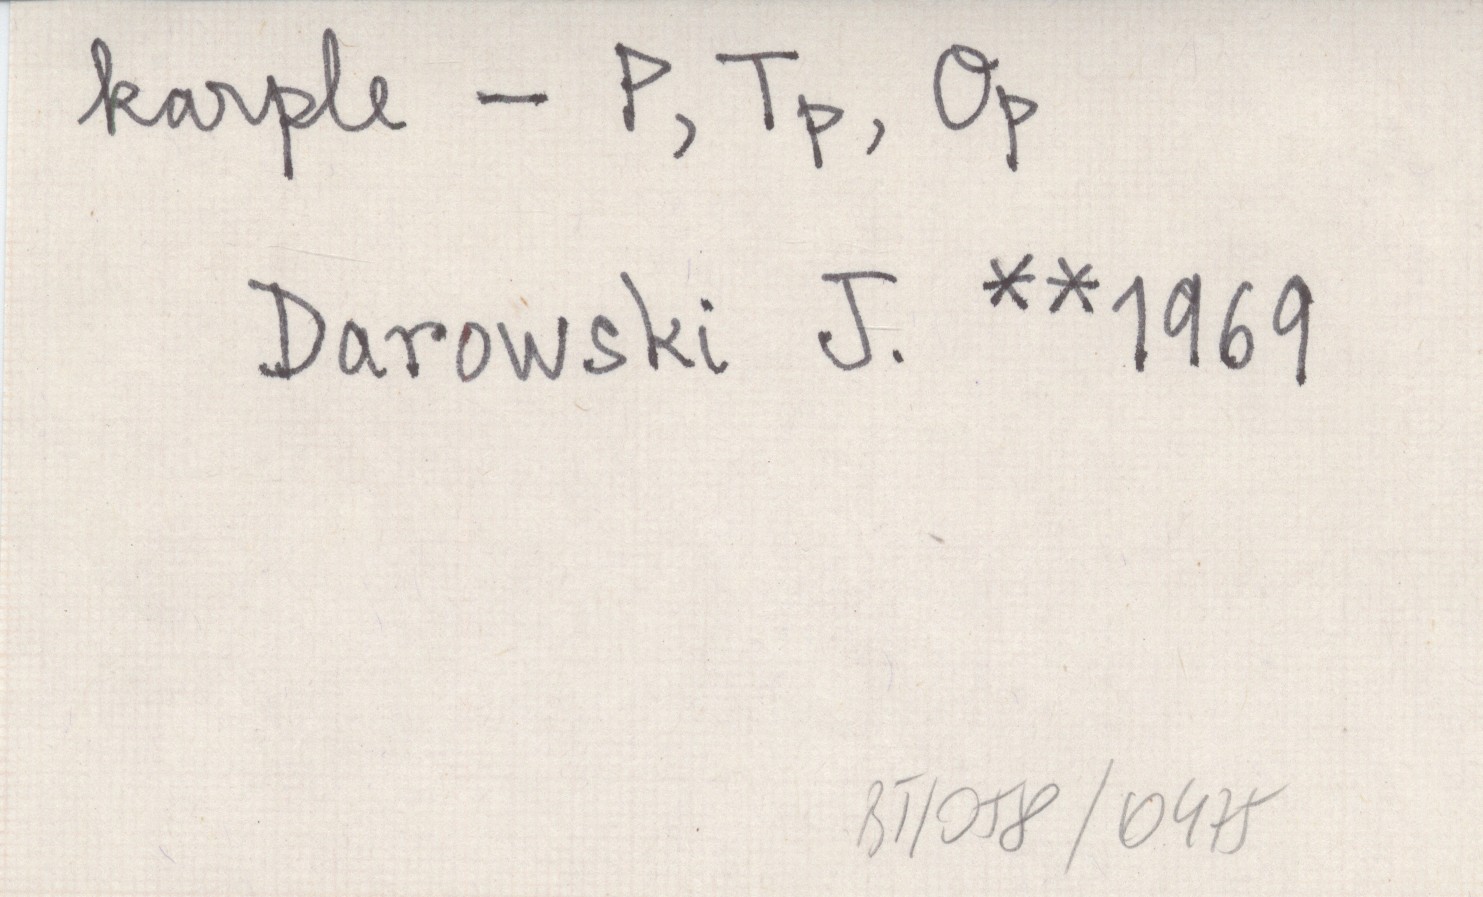 karple – P, Tp, Op
Darowski J. **1969
BT/058/0475